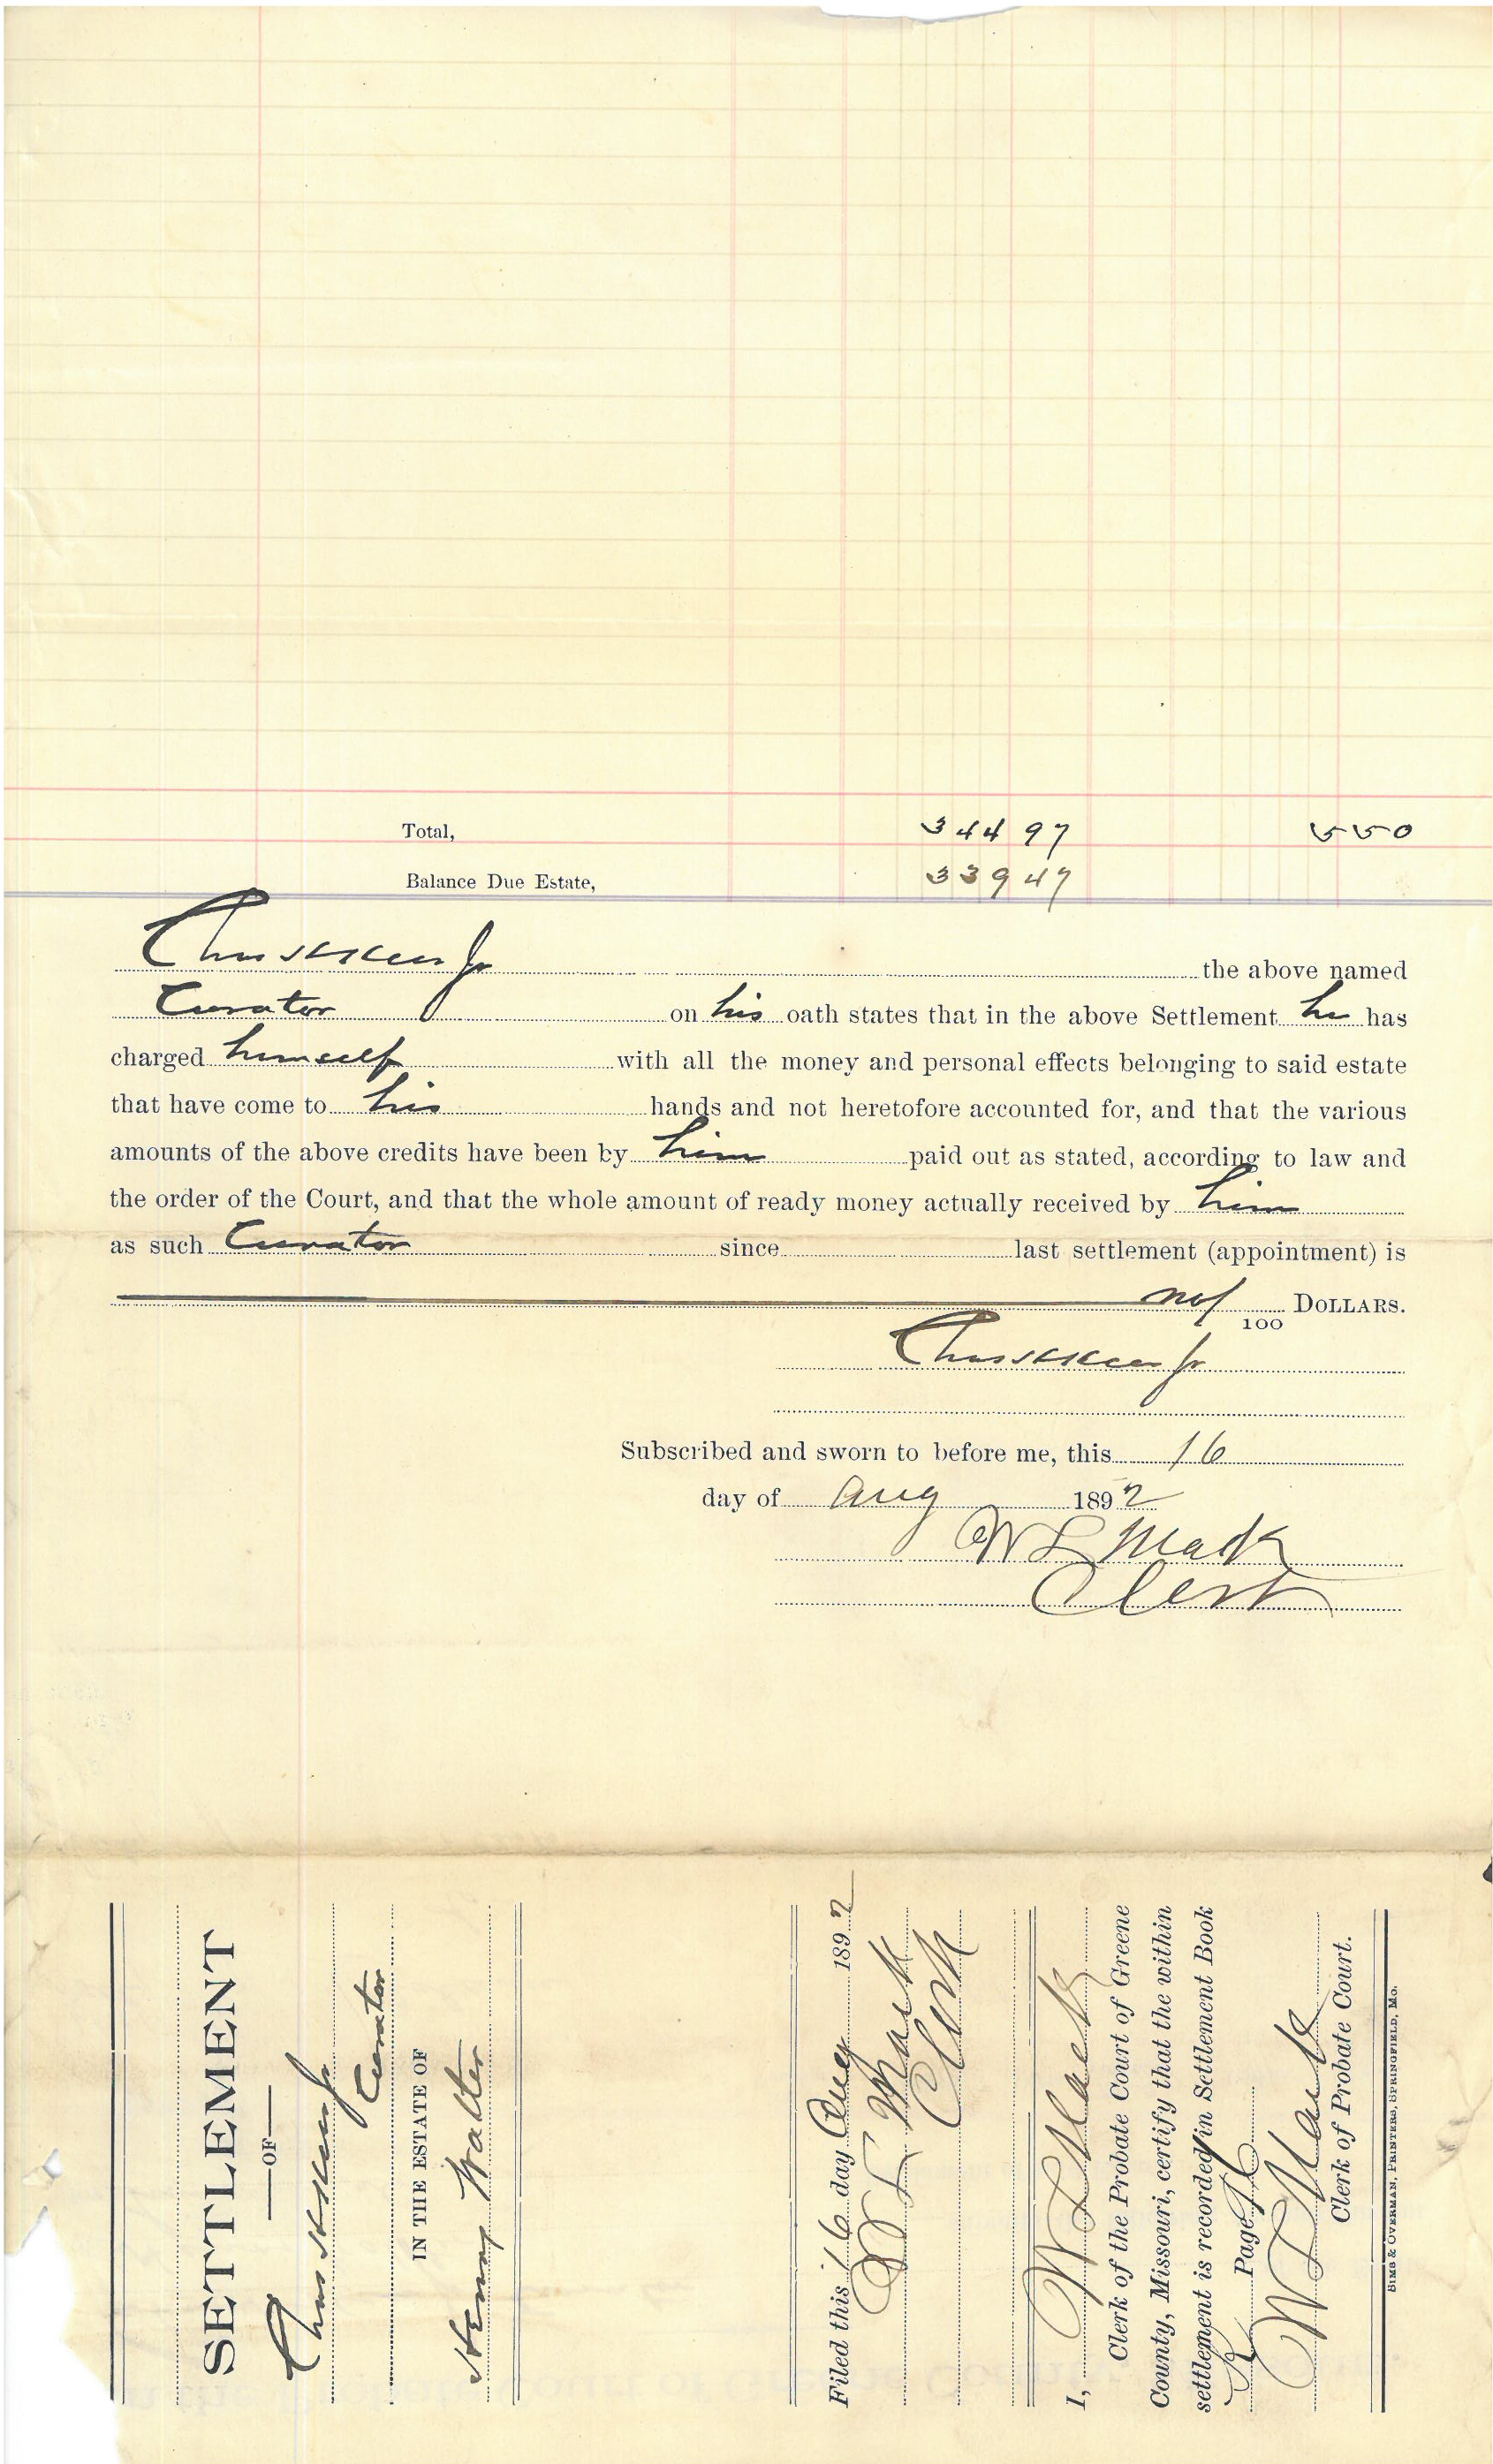 Total, 344 97 5 50
Balance Due Estate, 339 47
Chas Jr the above named
Curator on his oath states that in the above Settlement he has
charged himself with all the money and personal effects belonging to said estate
that have come to his hands and not heretofore accounted for, and that the various
amounts of the above credits have been by him paid out as stated, according to law and
the order of the Court, and that the whole amount of ready money actually received by him
as such Curator since last settlement (appointment) is
no/100 DOLLARS.
Chas Jr
Subscribed and sworn to before me, this 16
day of Aug 1892
W L Mack
Clerk
SETTLEMENT
OF
Chas Jr
Curator
IN THE ESTATE OF
Henry Walter
Filed this 16 day Aug 1892
W L Mack
Clerk
I, W L Mack
Clerk of the Probate Court of Greene
County, Missouri, certify that the within
settlement is recorded in Settlement Book
K Page
W L Mack
Clerk of Probate Court.
SIMS & OVERMAN, PRINTERS, SPRINGFIELD, MO.